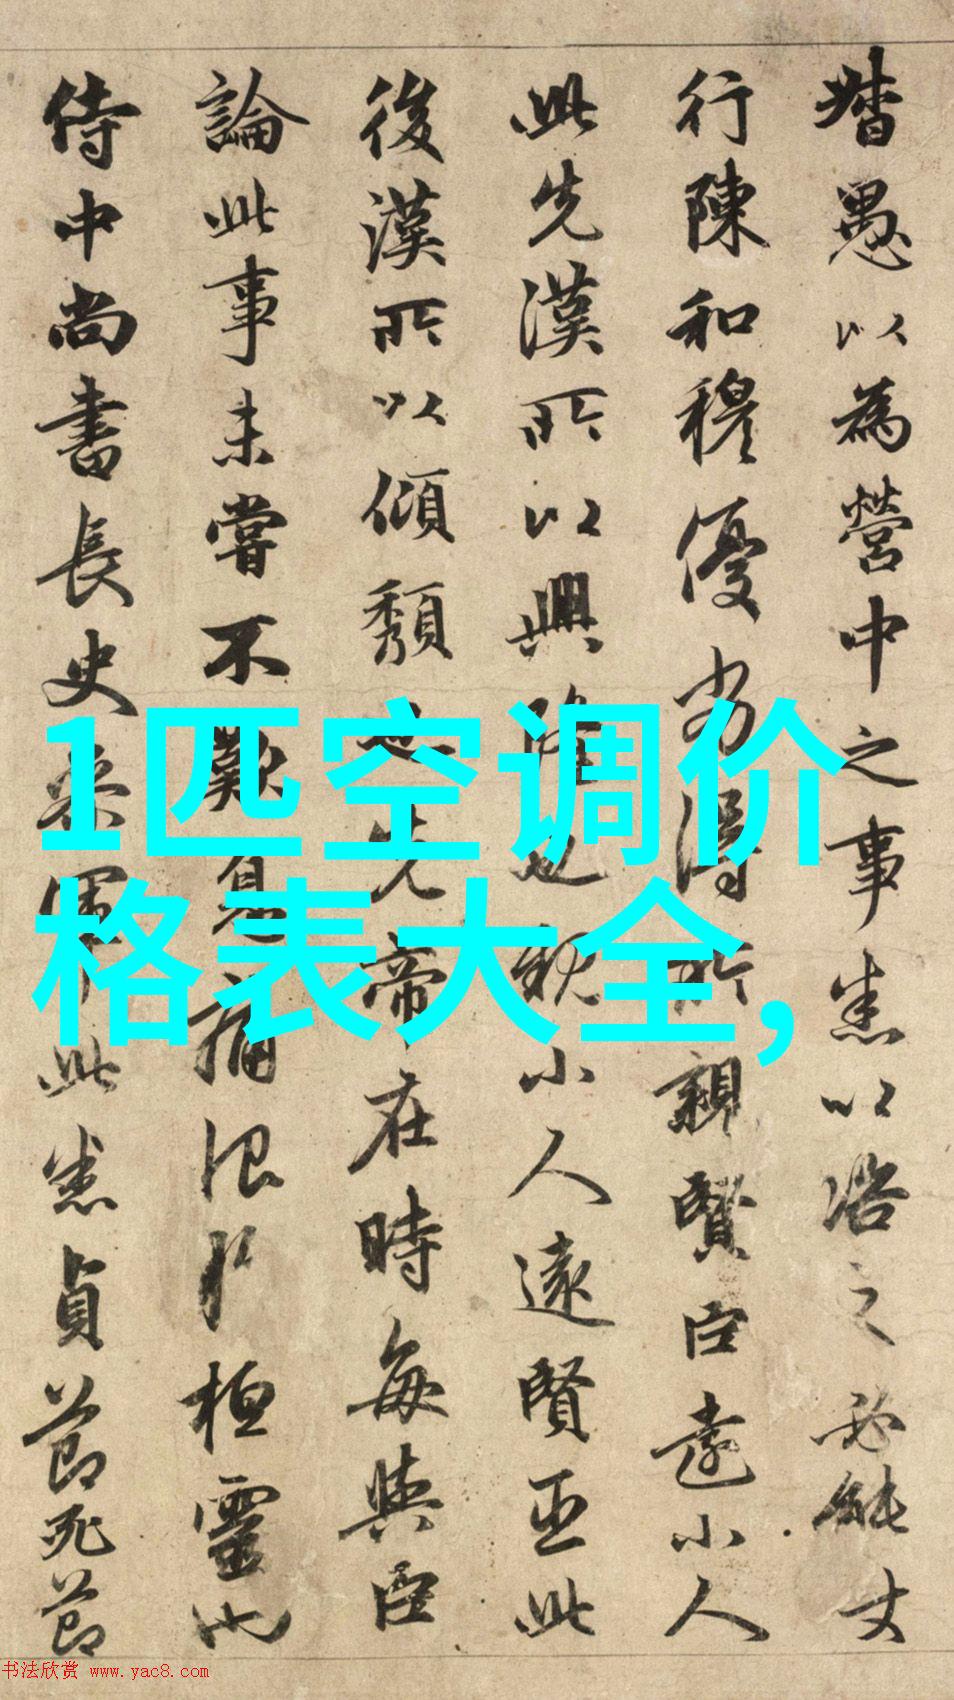 誻愚以為營中之事悉以諮之必能丈
行陳和穆優劣得所親賢臣遠小人
此先漢所以興隆也親小人遠賢臣此
後漢所以傾頹也先帝在時每與臣
論此事未嘗不歎息痛恨於桓靈也
侍中尚書長史參軍此悉貞節死節
1匹空调价
格表大全,
书法欣赏 www.yac8.com